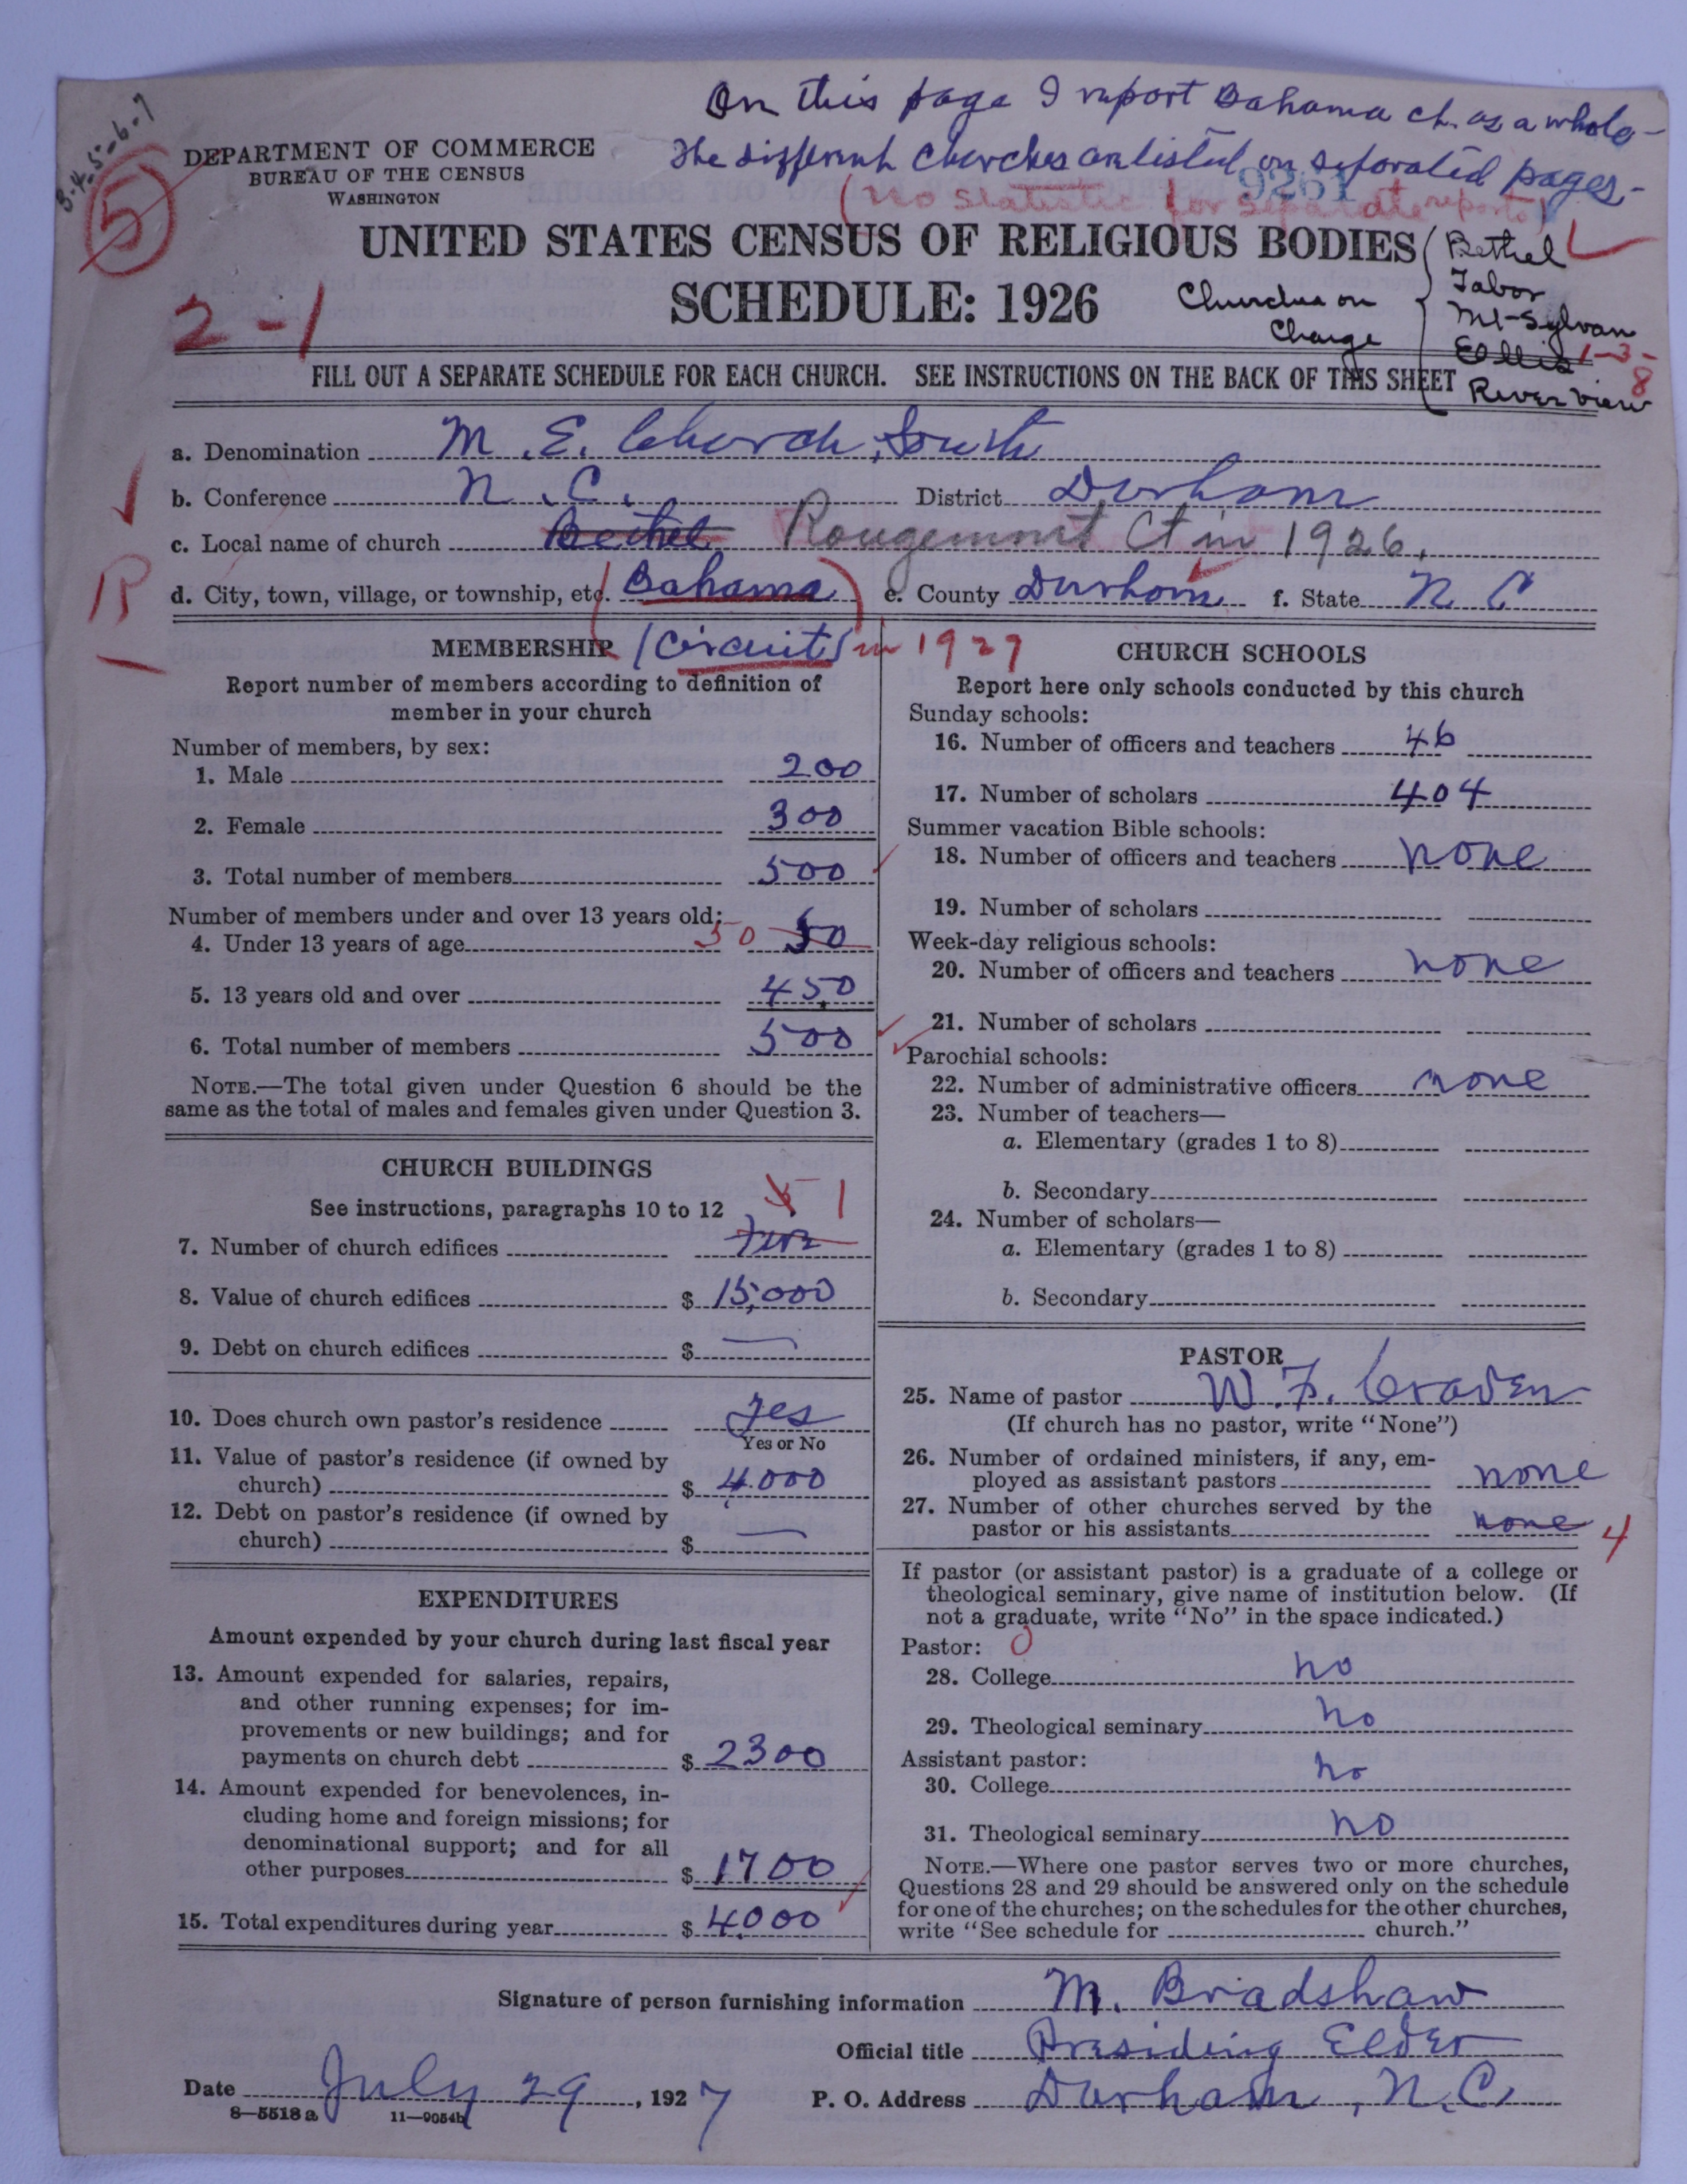 On this page I report Bahama ch. as a whole -
The different churches are listed on seporated pages. -
3-4-5-6-7
5
DEPARTMENT OF COMMERCE
BUREAU OF THE CENSUS
WASHINGTON
9261
(No statistic for separate reports)
UNITED STATES CENSUS OF RELIGIOUS BODIES
SCHEDULE: 1926
2-1
Churches on
Charge
Bethel
Tabor
Mt-Sylvan
Ellis
River view
1-3-8
FILL OUT A SEPARATE SCHEDULE FOR EACH CHURCH. SEE INSTRUCTIONS ON THE BACK OF THIS SHEET
a. Denomination M. E. Church, South
b. Conference N. C. District Durham
c. Local name of church Bethel Rougemont Ct in 1926.
R
d. City, town, village, or township, etc. (Bahama) e. County Durham f. State N C
(Circuit) in 1927
MEMBERSHIP
Report number of members according to definition of
member in your church
Number of members, by sex:
1. Male 200
2. Female 300
3. Total number of members 500
Number of members under and over 13 years old:
4. Under 13 years of age 50 50
5. 13 years old and over 450
6. Total number of members 500
NOTE.—The total given under Question 6 should be the
same as the total of males and females given under Question 3.
CHURCH BUILDINGS
See instructions, paragraphs 10 to 12
5 1
7. Number of church edifices
8. Value of church edifices $ 15,000
9. Debt on church edifices $ —
10. Does church own pastor's residence yes
Yes or No
11. Value of pastor's residence (if owned by
church) $ 4.000
12. Debt on pastor's residence (if owned by
church) $ —
EXPENDITURES
Amount expended by your church during last fiscal year
13. Amount expended for salaries, repairs,
and other running expenses; for im-
provements or new buildings; and for
payments on church debt $ 2300
14. Amount expended for benevolences, in-
cluding home and foreign missions; for
denominational support; and for all
other purposes $ 1700
15. Total expenditures during year $ 4000
CHURCH SCHOOLS
Report here only schools conducted by this church
Sunday schools:
16. Number of officers and teachers 46
17. Number of scholars 404
Summer vacation Bible schools:
18. Number of officers and teachers none
19. Number of scholars
Week-day religious schools:
20. Number of officers and teachers none
21. Number of scholars
Parochial schools:
22. Number of administrative officers none
23. Number of teachers—
a. Elementary (grades 1 to 8)
b. Secondary
24. Number of scholars—
a. Elementary (grades 1 to 8)
b. Secondary
PASTOR
25. Name of pastor W. F. Craven
(If church has no pastor, write "None")
26. Number of ordained ministers, if any, em-
ployed as assistant pastors none
27. Number of other churches served by the
pastor or his assistants none 4
If pastor (or assistant pastor) is a graduate of a college or
theological seminary, give name of institution below. (If
not a graduate, write "No" in the space indicated.)
Pastor: 0
28. College no
29. Theological seminary no
Assistant pastor:
30. College no
31. Theological seminary no
NOTE.—Where one pastor serves two or more churches,
Questions 28 and 29 should be answered only on the schedule
for one of the churches; on the schedules for the other churches,
write "See schedule for church."
Signature of person furnishing information M. Bradshaw
Official title Presiding Elder
Date July 29, 1927 P. O. Address Durham, N.C.
8—5518 a 11—9054b